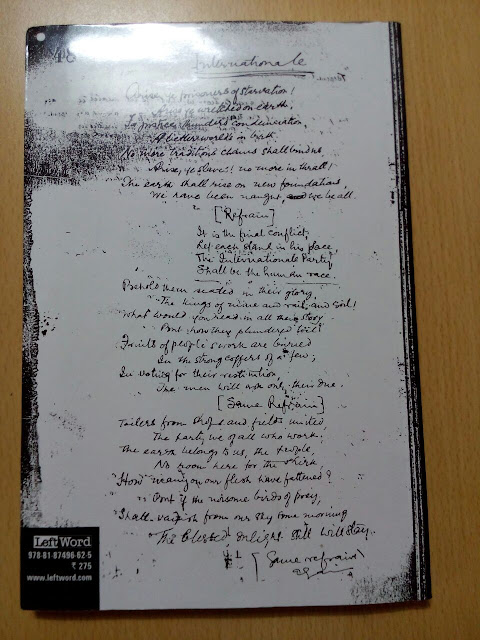 48
Internationale
Arise, ye prisoners of starvation!
Arise, ye wretched on earth,
For justice thunders condemnation,
A better world's in birth.
No more tradition's chains shall bind us
Arise, ye slaves! no more in thrall!
The earth shall rise on new foundations,
We have been naught, we be all.
[Refrain]
It is the final conflict,
Let each stand in his place,
The Internationale Party
Shall be the human race.
Behold them seated in their glory,
The kings of mine and rail and soil!
What would you read in all their story
But how they plundered toil?
Fruits of people's work are buried
In the strong coffers of a few;
In voting for their restitution,
The men will ask only their due.
[Same Refrain]
Toilers from shops and fields united,
The party we of all who work;
The earth belongs to us, the people,
No room here for the shirk
How many on our flesh have fattened?
But if the noisome birds of prey,
Shall vanish from our sky some morning
The blessed sunlight still will stay.
[Same refrain
LeftWord
978-81-87496-62-5
₹ 275
www.leftword.com